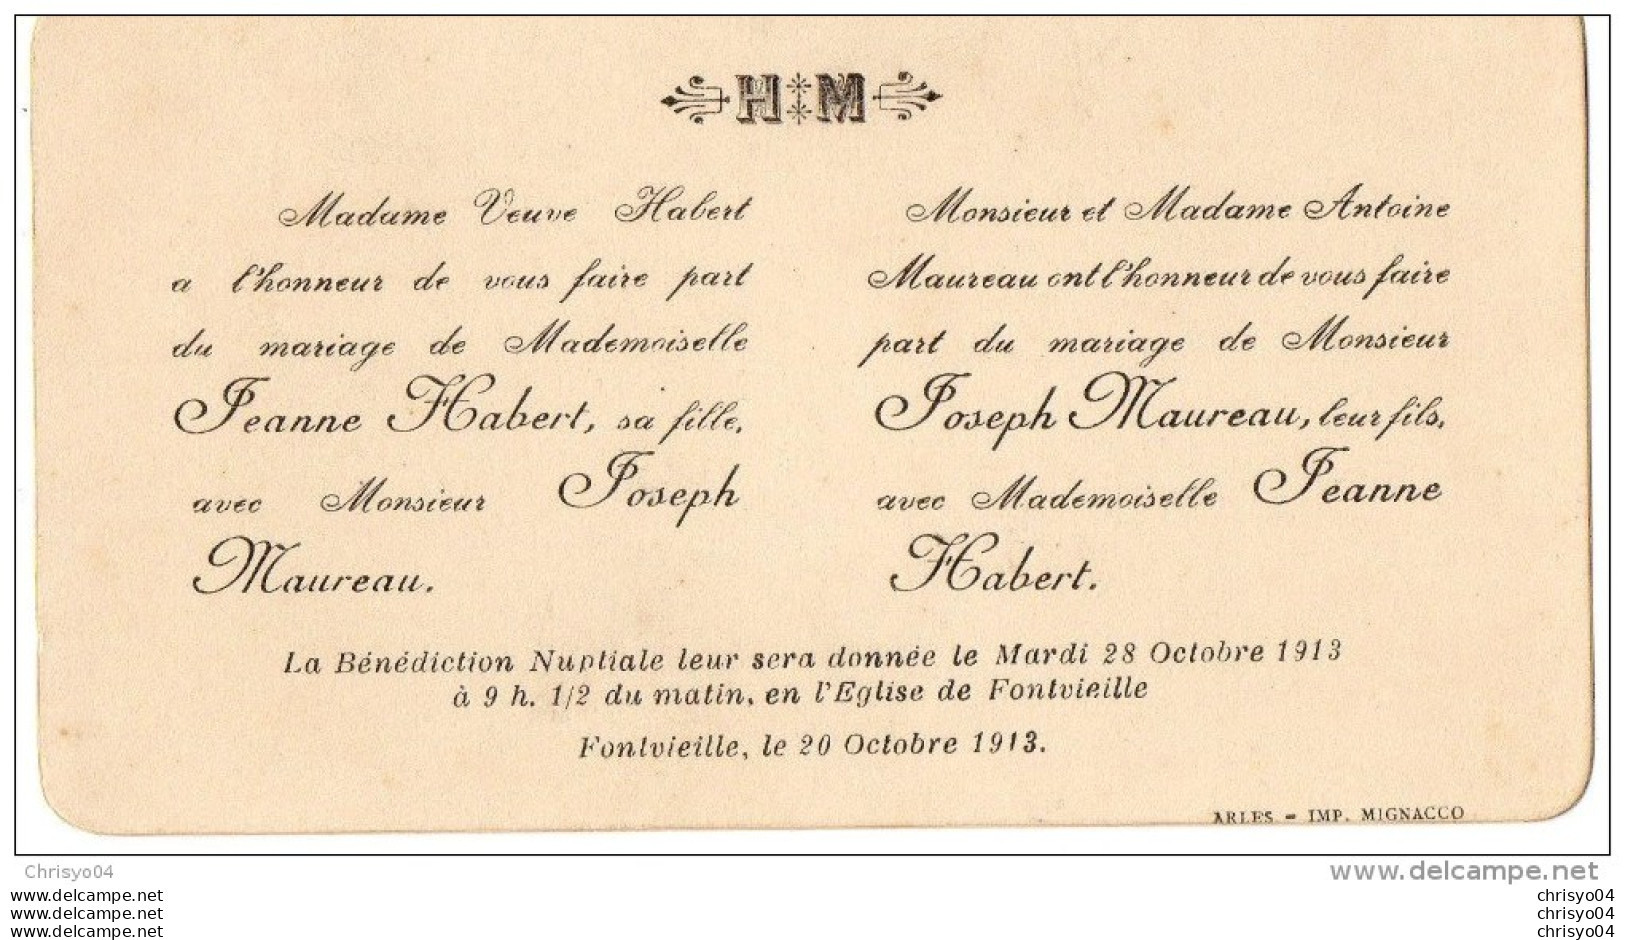 H M
Madame Veuve Habert
a l'honneur de vous faire part
du mariage de Mademoiselle
Jeanne Habert, sa fille,
avec Monsieur Joseph
Maureau.
Monsieur et Madame Antoine
Maureau ont l'honneur de vous faire
part du mariage de Monsieur
Joseph Maureau, leur fils,
avec Mademoiselle Jeanne
Habert.
La Bénédiction Nuptiale leur sera donnée le Mardi 28 Octobre 1913
à 9 h. 1/2 du matin, en l'Eglise de Fontvieille
Fontvieille, le 20 Octobre 1913.
ARLES - IMP. MIGNACCO
Chrisyo04
www.delcampe.net
www.delcampe.net
www.delcampe.net
www.delcampe.net
chrisyo04
chrisyo04
chrisyo04